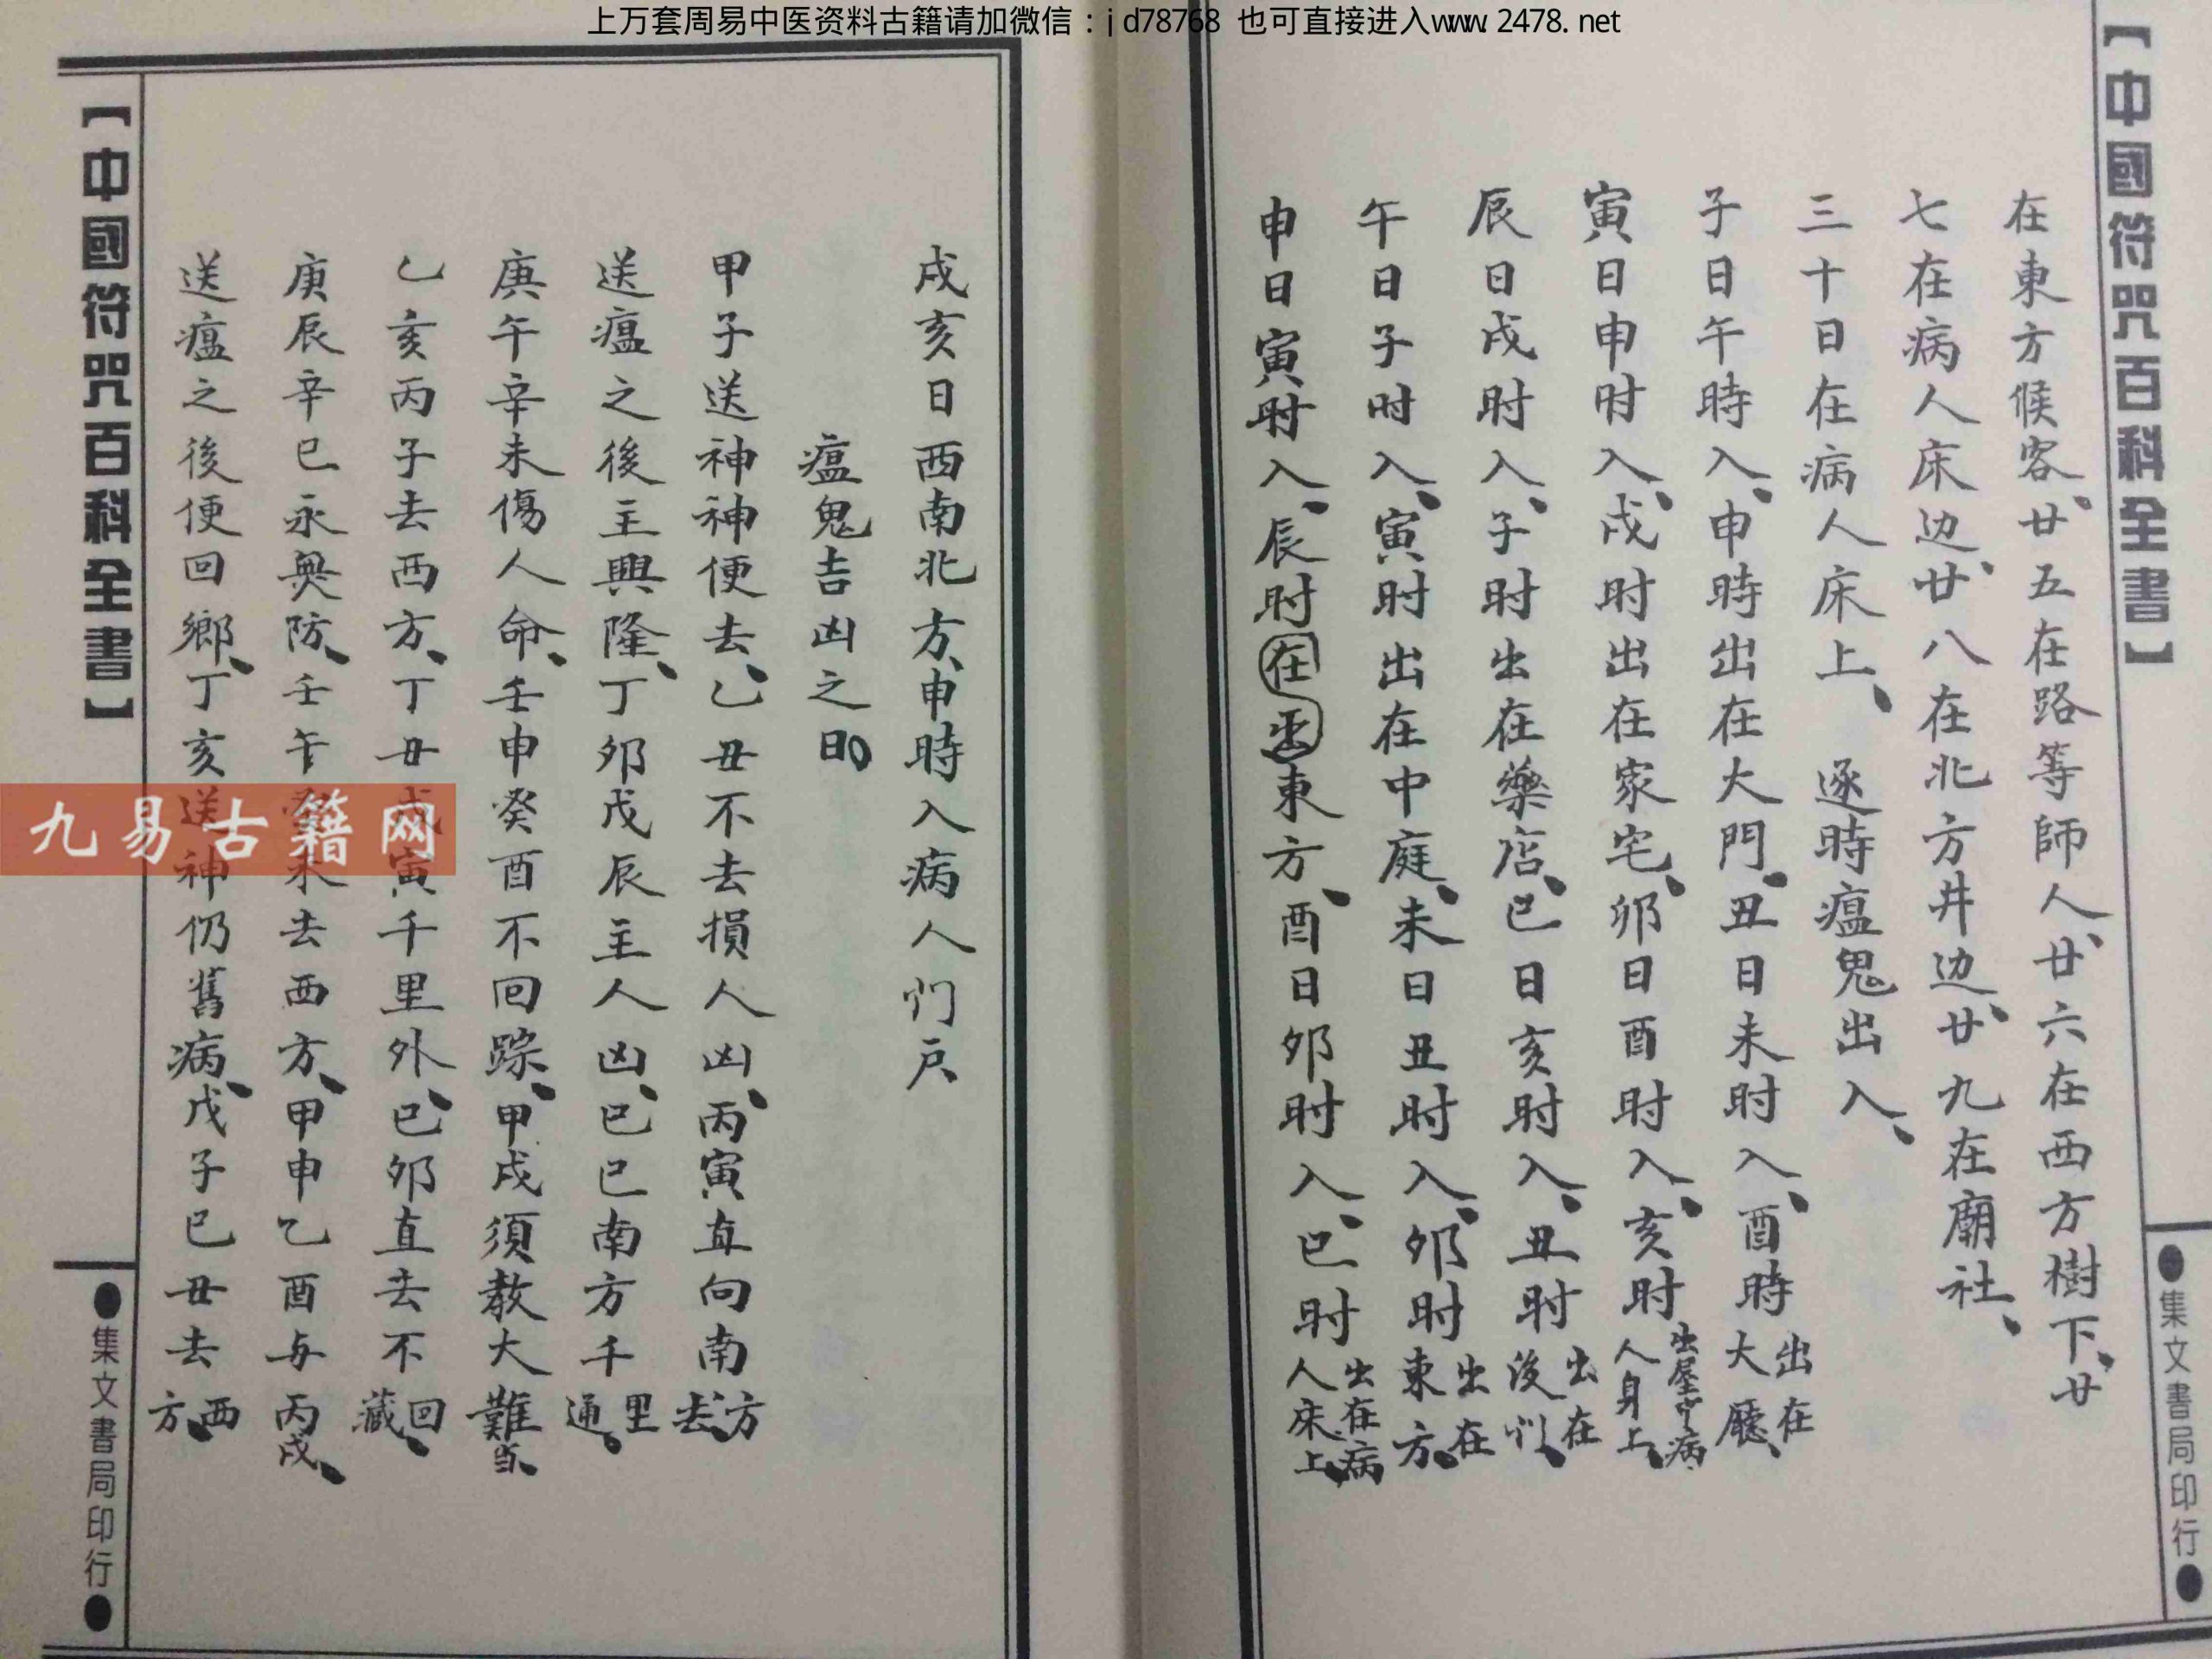 上万套周易中医资料古籍请加微信：jd78768 也可直接进入www.2478.net
【中國符咒百科全書】
●集文書局印行●
在東方候客、廿五在路等師人、廿六在西方樹下、廿
七在病人床边、廿八在北方井边、廿九在廟社、
三十日在病人床上、 逐時瘟鬼出入、
子日午時入、申時出在大門、丑日未时入、酉時出在大廳、
寅日申时入、戍时出在家宅、卯日酉时入、亥时出屋中病人身上、
辰日戍时入、子时出在藥店、巳日亥时入、丑时出在後门、
午日子时入、寅时出在中庭、未日丑时入、卯时出在東方、
申日寅时入、辰时在出東方、酉日卯时入、巳时出在病人床上、
戍亥日西南北方、申時入病人门户
瘟鬼吉凶之日
甲子送神神便去、乙丑不去損人凶、丙寅直向南方去、
送瘟之後主興隆、丁卯戊辰主人凶、巳巳南方千里通、
庚午辛未傷人命、壬申癸酉不回踪、甲戍須教大難当、
乙亥丙子去西方、丁丑戊寅千里外、巳卯直去不回藏、
庚辰辛巳永無防、壬午癸未去西方、甲申乙酉与丙戍、
送瘟之後便回鄉、丁亥送神仍舊病、戊子巳丑去西方、
【中國符咒百科全書】
●集文書局印行●
九易古籍网